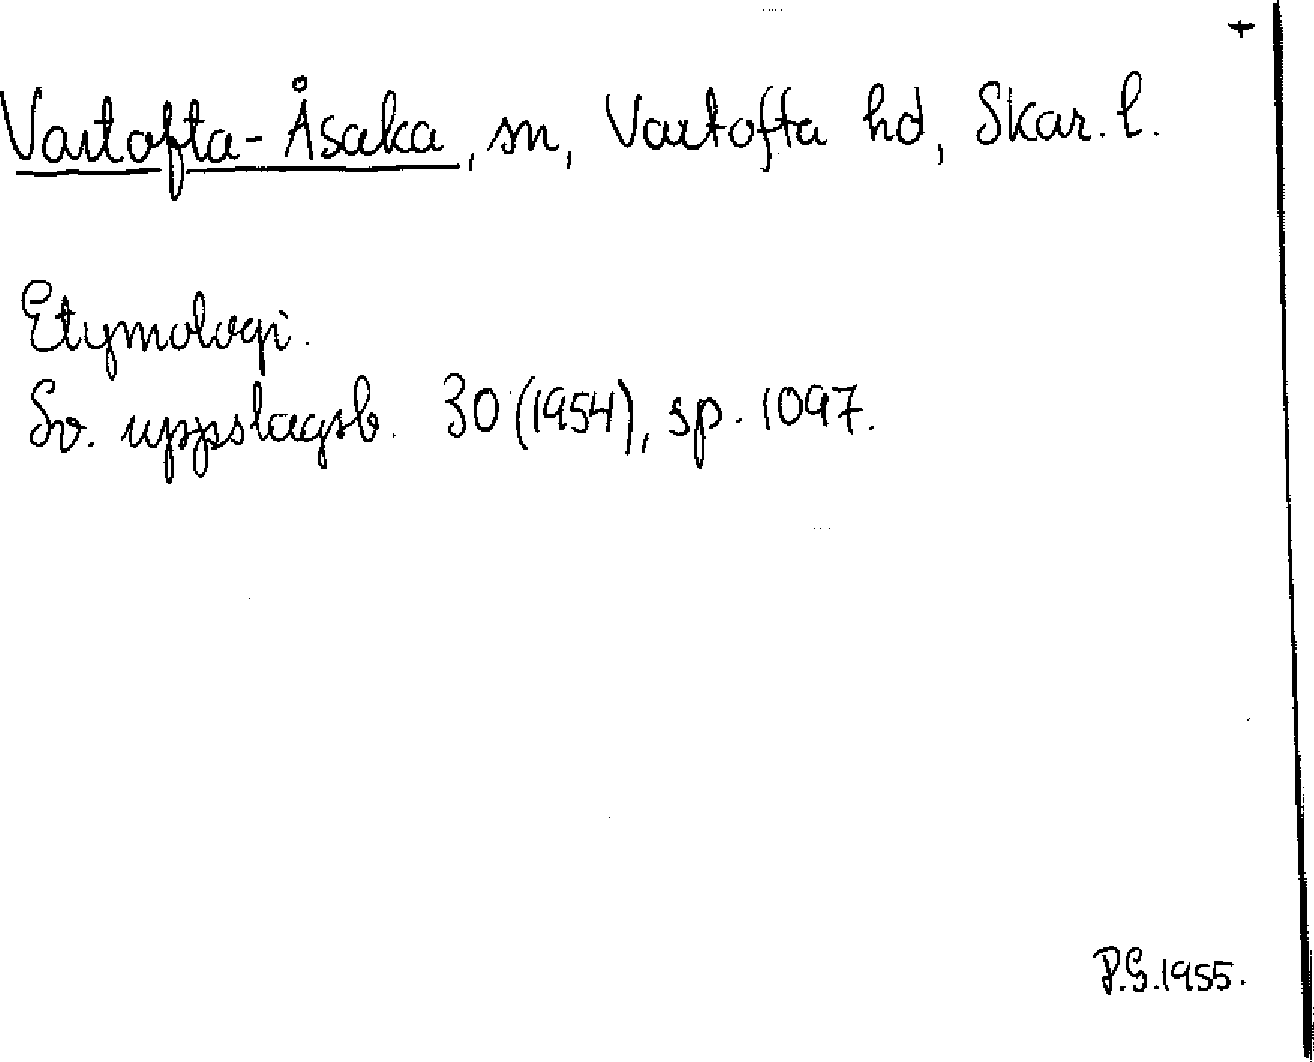 Vartofta-Åsaka, sn, Vartofta hd, Skar. l.
Etymologi.
Sv. uppslagsb. 30 (1954), sp. 1097.
P.G. 1955.